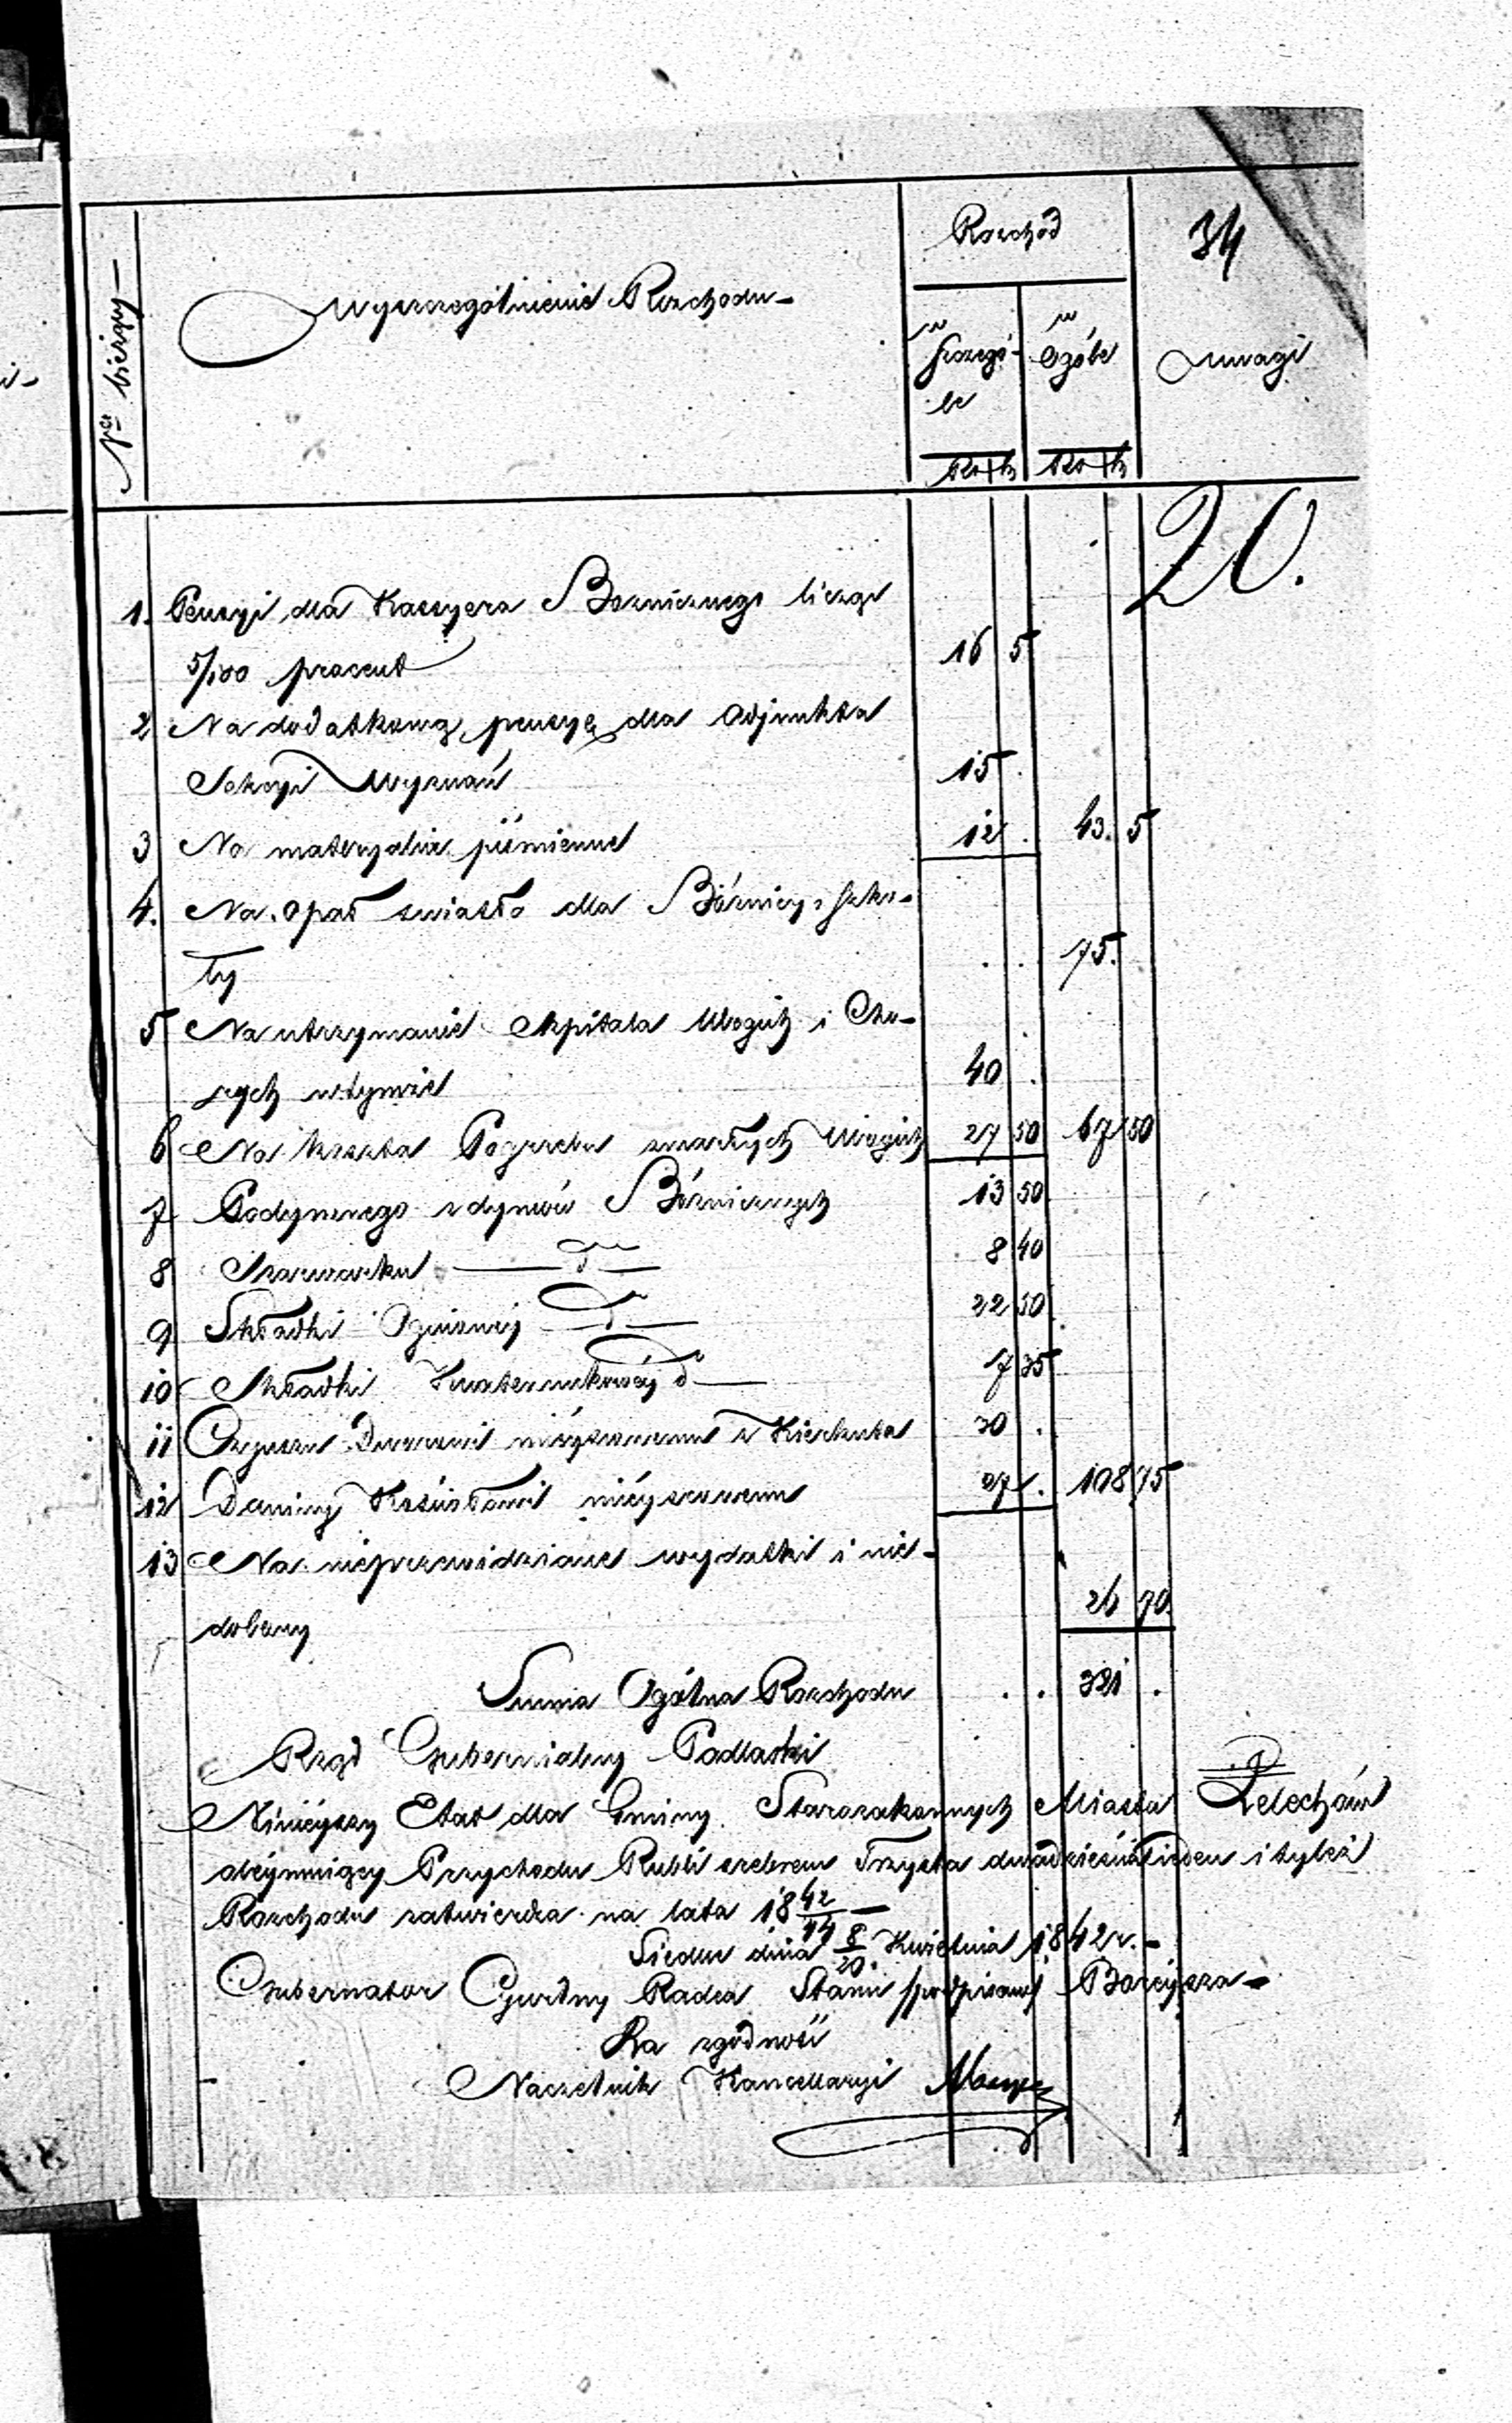 34
Rozchód
Wyszczególnienie Rozchodu
Nr bieżący
w Szczególe
w Ogóle
Uwagi
Rs k Rs k
20.
1. Pensyi dla Kassyera Bożnicznego licząc
5/100 procent 16 5
2 Na dodatkową pensyę dla Adjunkta
Sekcyi Wyznań 15 .
3 Na materyalia piśmienne 12 . 43. 5
4. Na opał światło dla Bóżnicy i Szko-
ły . . 75.
5 Na utrzymanie Szpitala Ubogich i Cho-
rych w tymże 40 .
6 Na koszta Pogrzebu zmarłych Ubogich 27 50 67 50
7 Podymnego z dymów Bóżnicznych 13 50
8 Szarwarku d 8 40
9 Składki Ogniowej d 22 50
10 Składki Kwaterunkowéj d 7 35
11 Czynszu Dworowi miéyscowemu z Kierkuta 30 .
12 Daniny Kościołowi miéyscowemu 27 . 108 75
13 Na nieprzewidziane wydatki i nie-
dobory 26 70
Summa Ogólna Rozchodu . . 321 .
Rząd Gubernialny Podlaski
Ninieyszy Etat dla Gminy Starozakonnych Miasta Żelechów
obéymuiący Przychodu Rubli srebrem Trzysta dwadzieścia ieden i tyleż
Rozchodu zatwierdza na lata 1842/44
Siedlce dnia 8/20 Kwietnia 1842 r.
Gubernator Cywilny Radca Stanu /podpisano/
Za zgodność
Naczelnik Kancellaryi